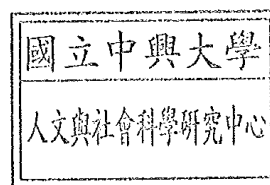 國立中興大學
人文與社會科學研究中心